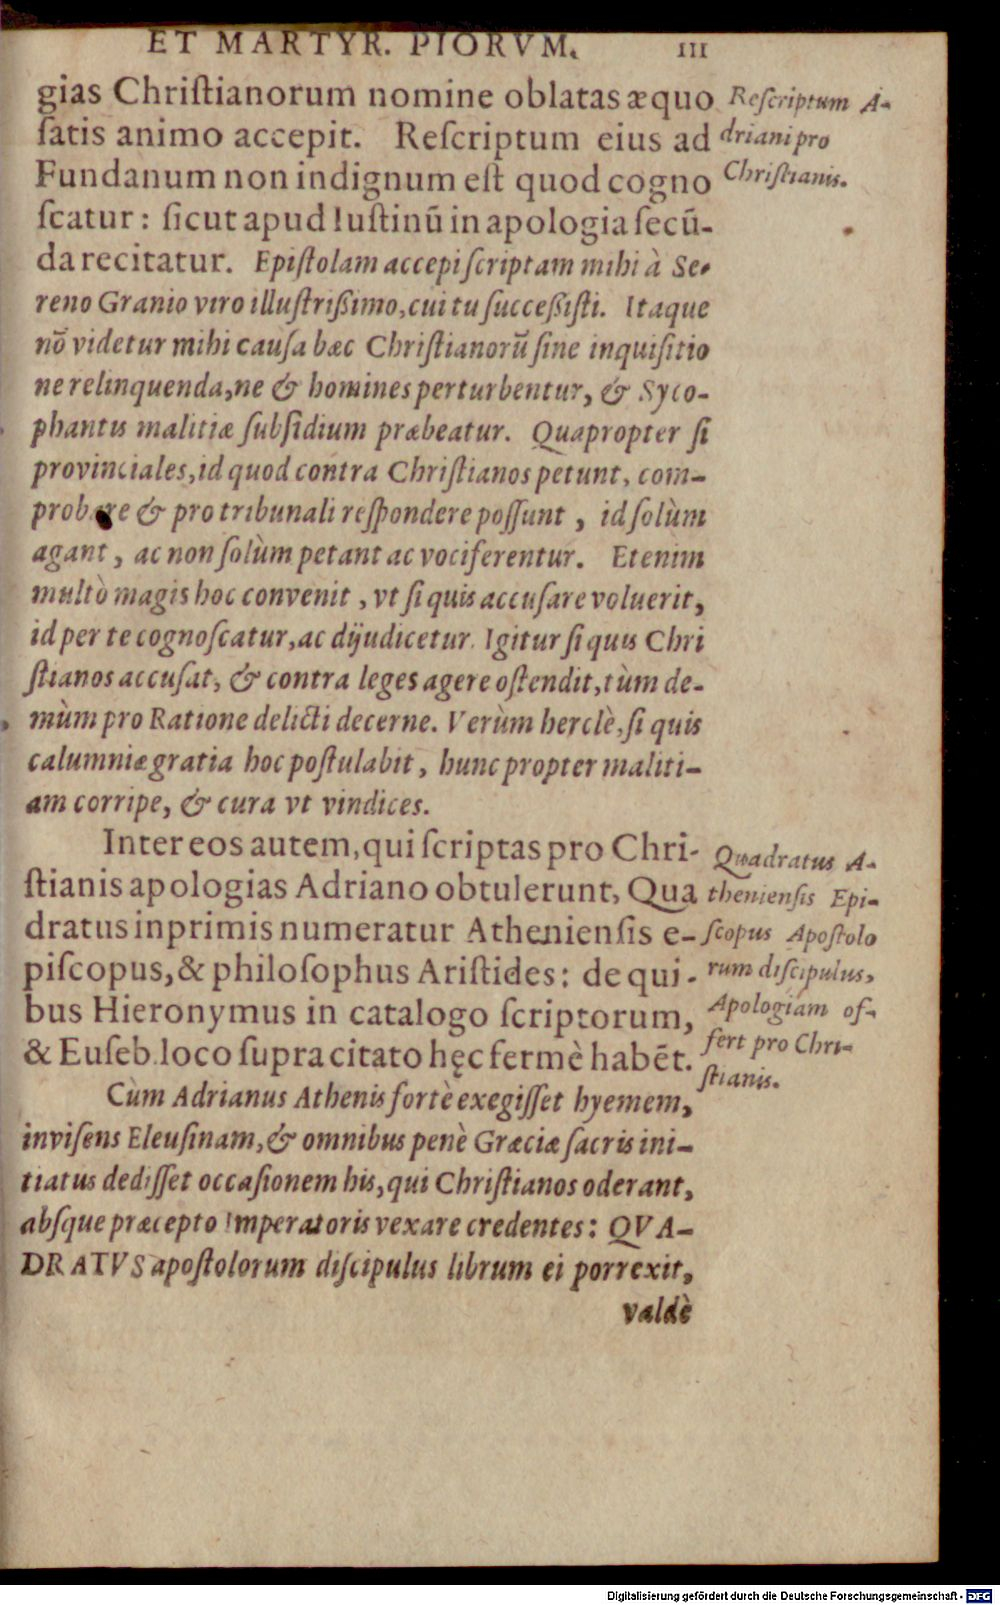 ET MARTYR. PIORVM. III
gias Chriſtianorum nomine oblatas æquo
ſatis animo accepit. Reſcriptum eius ad
Fundanum non indignum eſt quod cogno
ſcatur: ſicut apud Iuſtinū in apologia ſecū-
da recitatur. Epiſtolam accepi ſcriptam mihi à Se-
reno Granio viro illuſtrißimo, cui tu ſucceßiſti. Itaque
nō videtur mihi cauſa hæc Chriſtianorū ſine inquiſitio
ne relinquenda, ne & homines perturbentur, & Syco-
phantis malitiæ ſubſidium præbeatur. Quapropter ſi
provinciales, id quod contra Chriſtianos petunt, com-
probare & pro tribunali reſpondere poſſunt, id ſolùm
agant, ac non ſolùm petant ac vociferentur. Etenim
multò magis hoc convenit, vt ſi quis accuſare voluerit,
id per te cognoſcatur, ac dijudicetur. Igitur ſi quis Chri
ſtianos accuſat, & contra leges agere oſtendit, tùm de-
mùm pro Ratione delicti decerne. Verùm herclè, ſi quis
calumniæ gratia hoc poſtulabit, hunc propter maliti-
am corripe, & cura vt vindices.
Inter eos autem, qui ſcriptas pro Chri-
ſtianis apologias Adriano obtulerunt, Qua
dratus inprimis numeratur Athenienſis e-
piſcopus, & philoſophus Ariſtides: de qui-
bus Hieronymus in catalogo ſcriptorum,
& Euſeb. loco ſupra citato hęc fermè habēt.
Cùm Adrianus Athenis fortè exegiſſet hyemem,
inviſens Eleuſinam, & omnibus penè Græciæ ſacris ini-
tiatus dediſſet occaſionem his, qui Chriſtianos oderant,
abſque præcepto Imperatoris vexare credentes: QVA-
DRATVS apoſtolorum diſcipulus librum ei porrexit,
valdè
Reſcriptum A-
driani pro
Chriſtianis.
Quadratus A-
thenienſis Epi-
ſcopus Apoſtolo
rum diſcipulus,
Apologiam of-
fert pro Chri-
ſtianis.
Digitalisierung gefördert durch die Deutsche Forschungsgemeinschaft - DFG